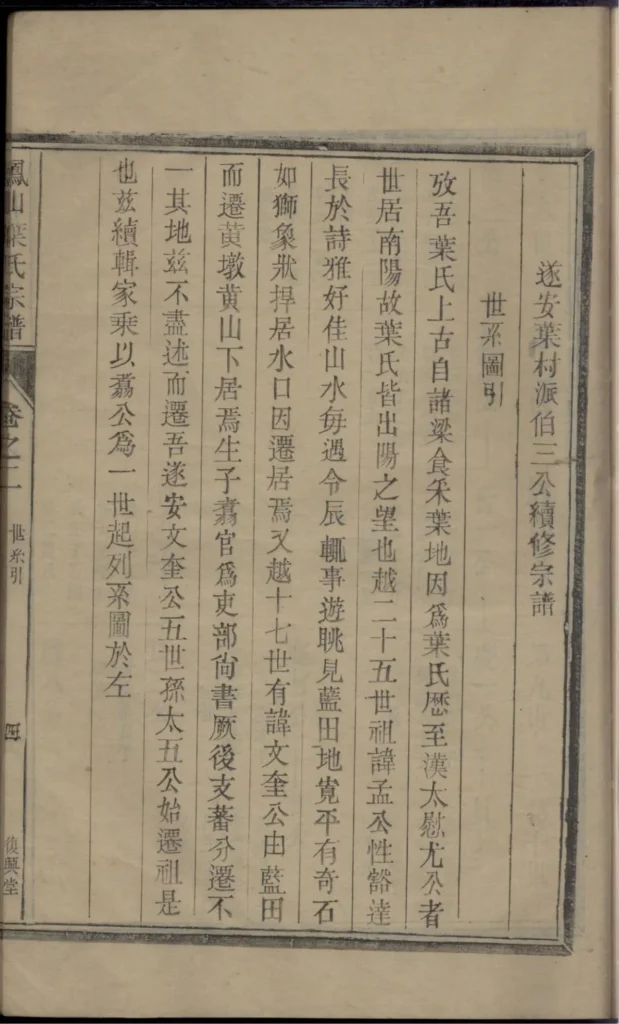 遂安葉村派伯三公續修宗譜
世系圖引
攷吾葉氏上古自諸梁食采葉地因爲葉氏歷至漢太慰尤公者
世居南陽故葉氏皆出陽之望也越二十五世祖諱孟公性豁達
長於詩雅好佳山水每遇令辰輒事遊眺見藍田地寬平有奇石
如獅象狀捍居水口因遷居焉又越十七世有諱文奎公由藍田
而遷黄墩黄山下居焉生子翥官爲吏部尙書厥後支蕃分遷不
一其地兹不盡述而遷吾遂安文奎公五世孫太五公始遷祖是
也兹續輯家乘以翥公爲一世起列系圖於左
鳳山葉氏宗譜
卷之二
世系引
四
復興堂